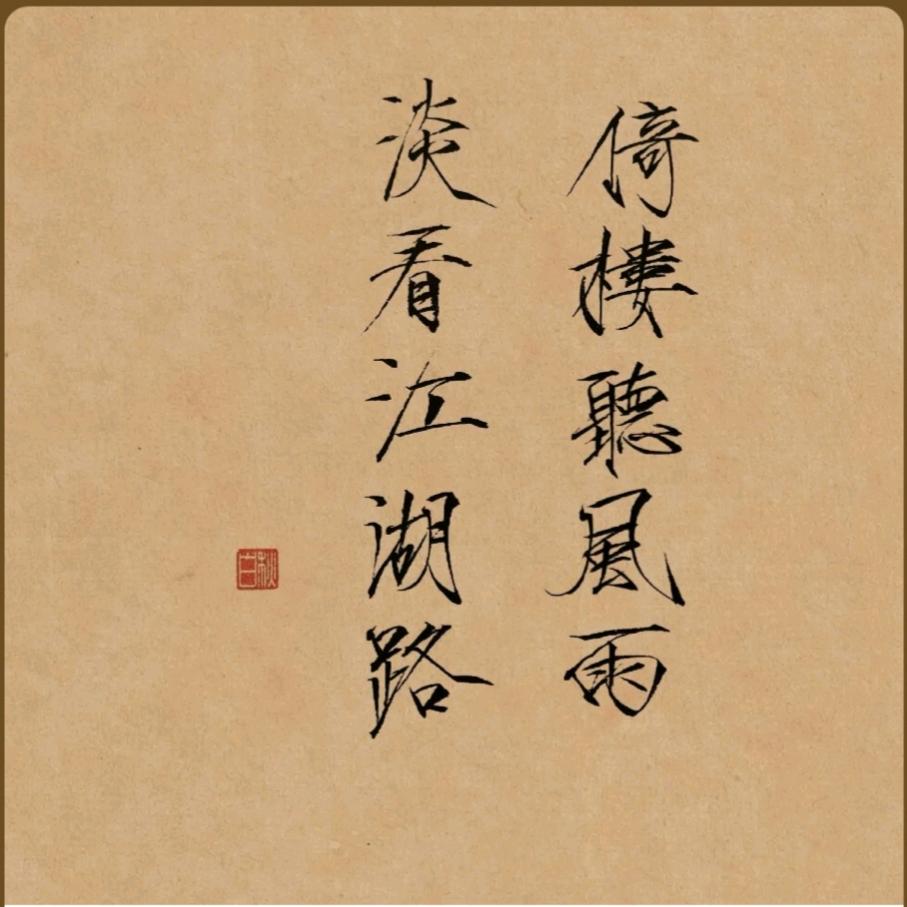 倚樓聽風雨
淡看江湖路
秋白